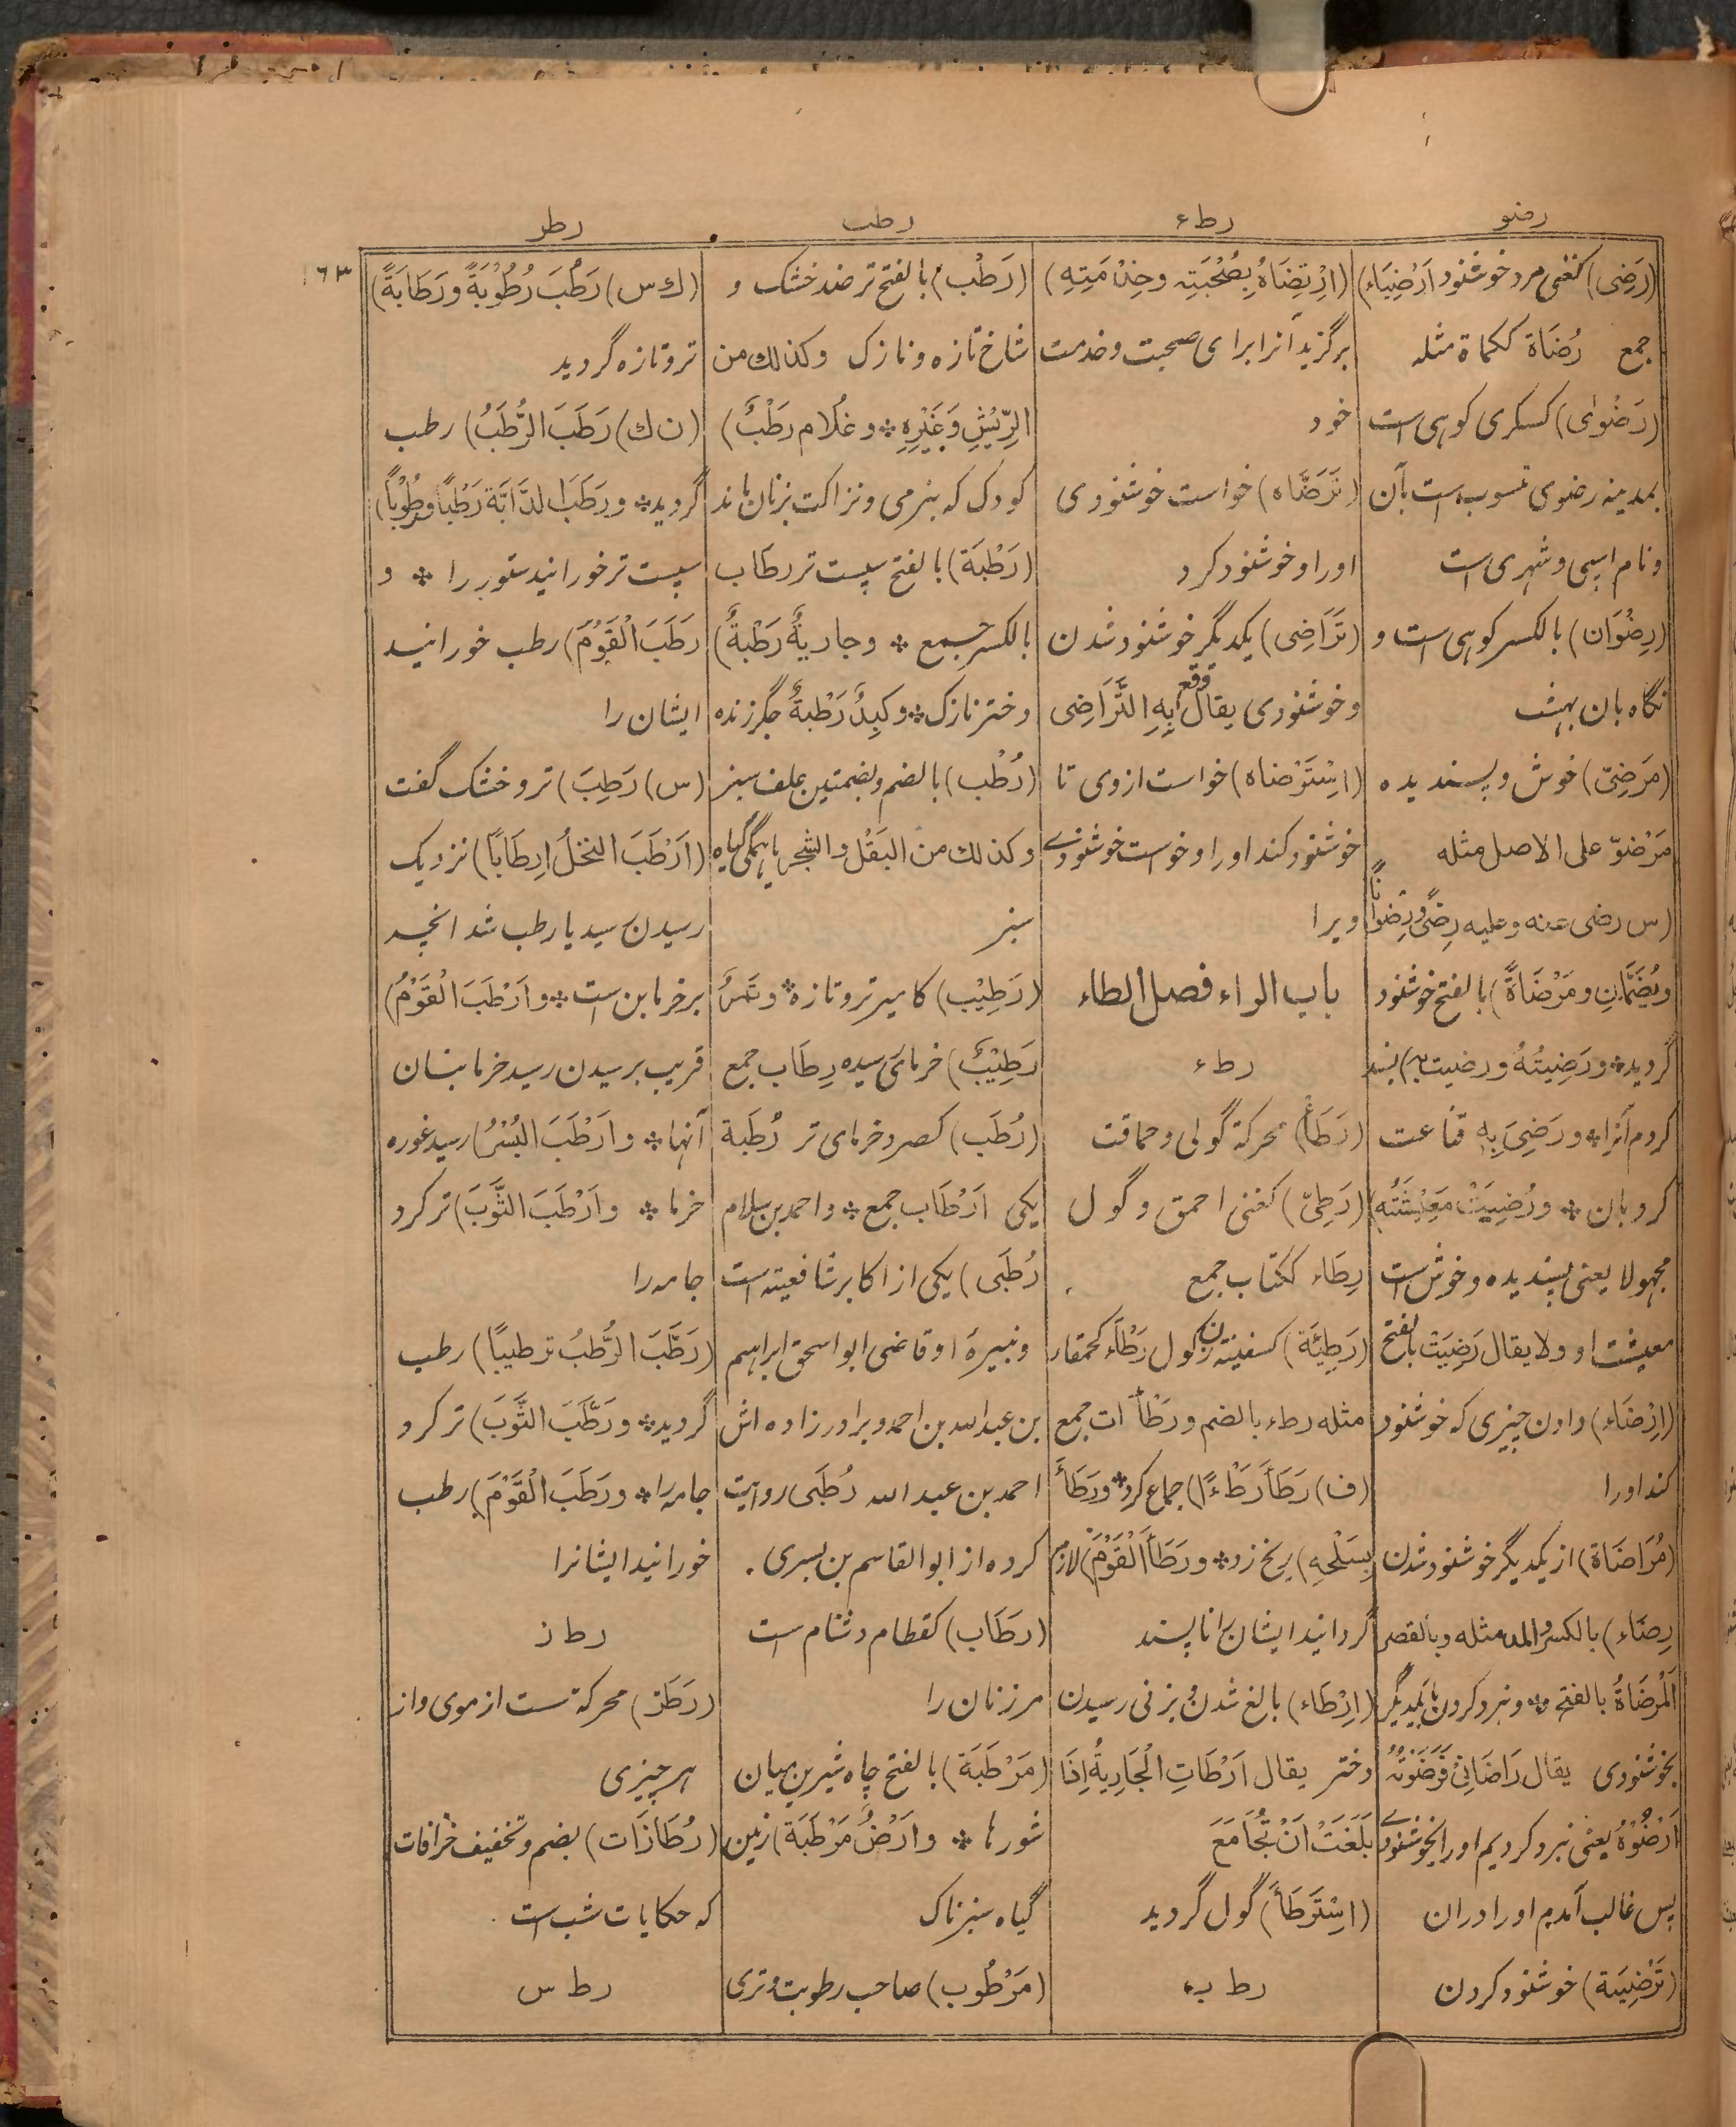 رضو
رطء
رطب
رطر
١٦٣
(رَضِی) کغنی مرد خوشنود اَرْضِیَاء)
جمع رُضَاة ککماة مثله
(رَضْوٰی) کسکری کوہی است
بمدینه رضوی منسوب است بآن
و نام اسپی و شهری است
(رِضْوَان) بالکسر کوہی است و
نگاه بان بهشت
(مَرْضِیّ) خوش و پسندیده
مَرْضُوّ علی الاصل مثله
(س رضی عنه و علیه رِضًی و رِضْوَانًا
وَیُضَمَّانِ و مَرْضَاةً) بالفتح خوشنود
گردید٭ و رَضِیتُهُ و رضیت به) پسند
کردم آنرا٭ و رَضِیَ بِهٖ قناعت
کرد بان ٭ و رُضِیَتْ مَعِیْشَتُه)
مجهولا یعنی پسندیده و خوش است
معیشت او ولا یقال رَضِیَتْ بالفتح
(اِرْضَاء) دادن چیزی که خوشنود
کند او را
(مُرَاضَاة) از یکدیگر خوشنود شدن
رِضَاء) بالکسر والمد مثله و بالقصر
اَلْمَرْضَاةُ بالفتح ٭ و نبرد کردن بایکدیگر
بخوشنودی یقال رَاضَانِیْ فَرَضَوْتُهٗ
اَرْضُوْهُ یعنی نبرد کردیم او را بخوشنودی
پس غالب آمدم او را دران
(تَرْضِیَة) خوشنود کردن
(اِرْتِضَاهُ بِصُحْبَتِهٖ وخِدْمَتِهِ)
برگزید آنرا برای صحبت و خدمت
خود
(تَرَضَّاه) خواست خوشنودی
او را و خوشنود کرد
(تَرَاضِی) یکدیگر خوشنود شدن
و خوشنودی یقال وقع بِهِ التَّرَاضِی
(اِسْتَرْضاه) خواست از وی تا
خوشنود کند او را و خواست خوشنودی
ویرا
باب الراء فصل الطاء
رطء
(رَطَأ) محرکة گولی و حماقت
(رَطِیّ) کغنی احمق و گول
رِطَاء ککتاب جمع
(رَطِیْئَة) کسفینة زن گول رَطْآء کحمقاء
مثله رطء بالضم و رَطْآآت جمع
(ف) رَطَأَ رَطْاءً) جماع کرد٭ و رَطَأَ
بِسَلْحِهِ) ریخ زد٭ و رَطَأَ الْقَوْمَ) لازم
گردانید ایشان را ناپسند
(اِرْطَاء) بالغ شدن و بزنی رسیدن
دختر یقال اَرْطَاتِ الْجَارِیةُ اِذَا
بَلَغَتْ اَنْ تُجَامَعَ
(اِسْتَرْطَأَ) گول گردید
رط ب
(رَطْب) بالفتح تر ضد خشک و
شاخ تازه و نازک وکذلك من
الرِّیْشِ وَغَیْرِهٖ٭ و غُلَام رَطْبٌ)
کودک که بنرمی و نزاکت بزنان ماند
(رَطْبَة) بالفتح سپست تر رطَاب
بالکسر جمع ٭ و جاریةٌ رَطْبةٌ)
دختر نازک٭ و کبِدٌ رَطْبةٌ جگر زنده
(رُطْب) بالضم و بضمتین علف سبز
و کذلك من البَقْل والشجر یا همگی گیاه
سبز
(رَطِیْب) کامیر تر و تازه٭ و تمرٌ
رَطِیْبٌ) خرمای رسیده رِطَاب جمع
(رُطَب) کصرد خرمای تر رُطَبة
یکی اَرْطَاب جمع٭ و احمد بن سلام
رُطَبَی) یکی از اکابر شافعیته است
و نبیرهٔ او قاضی ابو اسحق ابراهیم
بن عبدالله بن احمد و برادر زاده اش
احمد بن عبدالله رُطَبَی روایت
کرده از ابو القاسم بن بسری.
(رطَاب) کقطام دشنام است
مر زنان را
(مَرْطَبَة) بالفتح چاه شیرین میان
شورها ٭ و اَرْضٌ مَرْطَبَة) زمین
گیاه سبزناک
(مَرْطُوب) صاحب رطوبت و تری
(ك س) رَطُبَ رُطُوْبَةً و رَطَابَةً)
تر و تازه گردید
(ن ك) رَطَبَ الرُّطَبُ) رطب
گردید٭ و رَطَبَ الدَّابَّة رَطْبًا و رُطُوْبًا)
سپست تر خورانید ستور را ٭ و
رَطَبَ الْقَوْمَ) رطب خورانید
ایشان را
(س) رَطِبَ) تر و خشک گفت
(اَرْطَبَ النخلُ اِرطَابًا) نزدیک
رسیدن رسید یا رطب شد انچه
بر خرمابن ست٭ و اَرْطَبَ الْقَوْمُ)
قریب برسیدن رسید خرمابنان
آنها٭ و اَرْطَبَ البُسْرُ) رسید غوره
خرما ٭ و اَرْطَبَ الثَّوبَ) تر کرد
جامه را
(رَطَّبَ الرُّطَبُ ترطیبًا) رطب
گردید٭ و رَطَّبَ الثَّوبَ) تر کرد
جامه را٭ و رَطَّبَ الْقَوْمَ) رطب
خورانید ایشانرا
رط ز
(رَطَز) محرکة ست از موی و از
هر چیزی
(رُطَازَات) بضم و تخفیف خرافات
که حکایات شب است
رط س